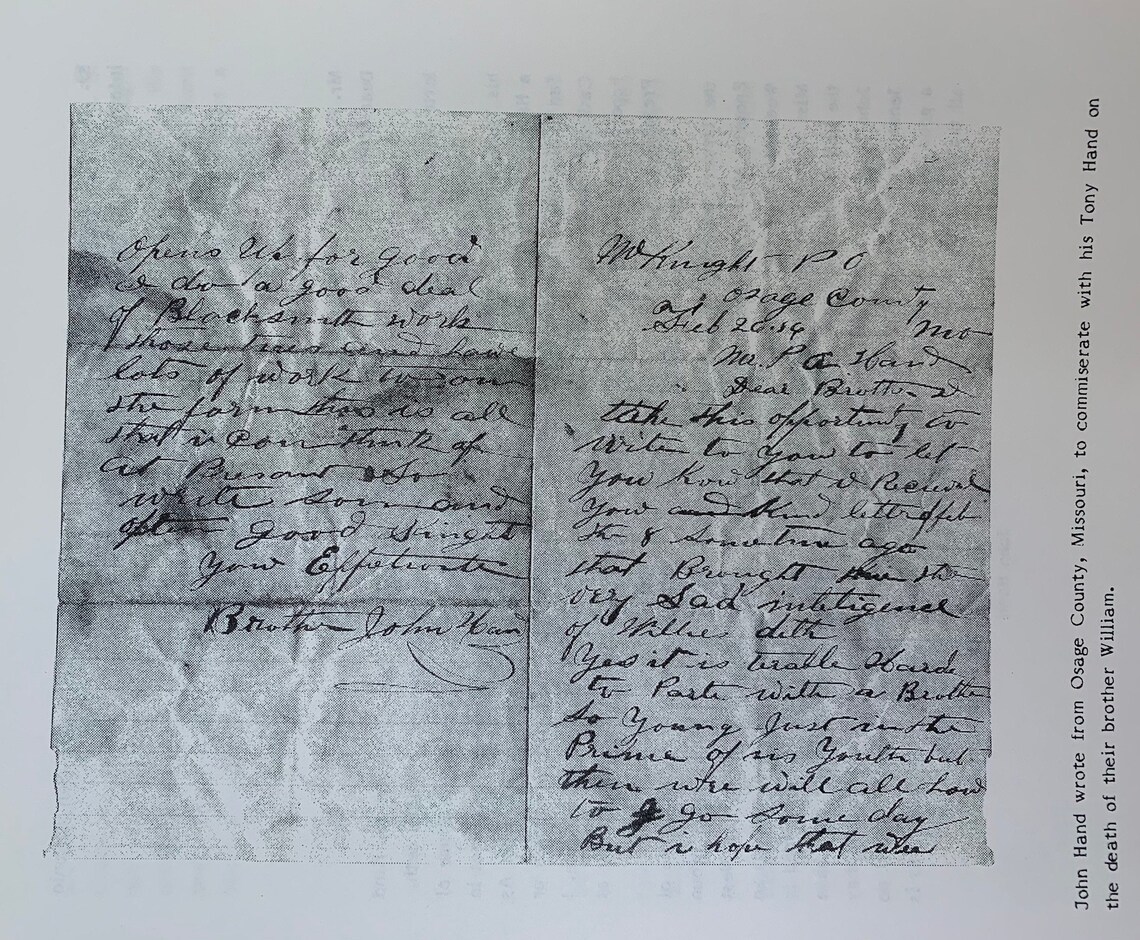 McKnight P O
Osage County
Feb 20.            Mo
Mr. P a Hand
Dear Brother I
take this opportunity to
Write to You to let
You Know that I Received
Your and Kind letter of feb
the 8 sometime ago
that Brought the
very Sad inteligence
of Willies deth
Yes it is Harde
to Parte with a Brother
So Young Just in the
Prime of his Youth but
then wee will all have
to go some day
But i hope that wee
Opens Up for good
I do a good deal
of Blacksmith work
those and have
lots of work to on
the farm this is all
that i can think of
at Presant So
write soon and
often good Night
Your Effetionate
Brother John Hand
John Hand wrote from Osage County, Missouri, to commiserate with his Tony Hand on
the death of their brother William.